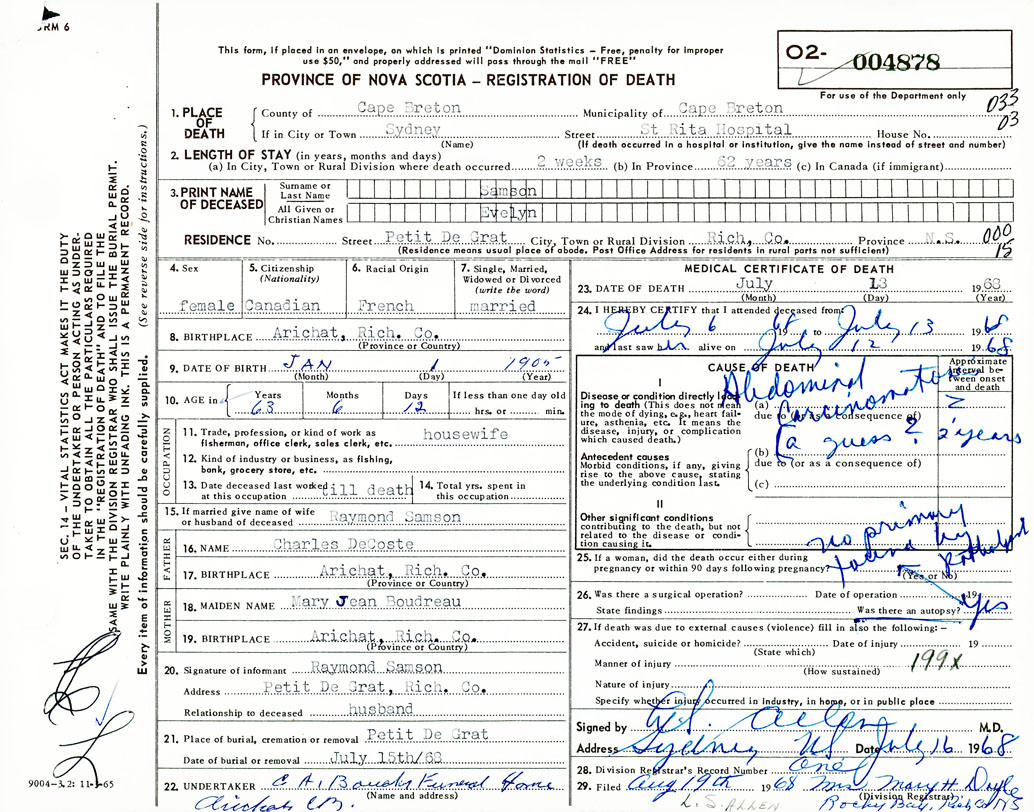 FORM 6
This form, if placed in an envelope, on which is printed "Dominion Statistics – Free, penalty for improper
use $50," and properly addressed will pass through the mail "FREE"
PROVINCE OF NOVA SCOTIA – REGISTRATION OF DEATH
02- 004878
For use of the Department only
033
03
1. PLACE OF DEATH
County of Cape Breton Municipality of Cape Breton
If in City or Town Sydney Street St Rita Hospital House No.
(Name) (If death occurred in a hospital or institution, give the name instead of street and number)
2. LENGTH OF STAY (in years, months and days)
(a) In City, Town or Rural Division where death occurred 2 weeks (b) In Province 62 years (c) In Canada (if immigrant)
3. PRINT NAME OF DECEASED
Surname or Last Name Samson
All Given or Christian Names Evelyn
RESIDENCE No. Street Petit De Grat City, Town or Rural Division Rich, Co. Province N.S. 000
15
(Residence means usual place of abode. Post Office Address for residents in rural parts not sufficient)
4. Sex
female
5. Citizenship
(Nationality)
Canadian
6. Racial Origin
French
7. Single, Married,
Widowed or Divorced
(write the word)
married
8. BIRTHPLACE Arichat, Rich. Co.
(Province or Country)
9. DATE OF BIRTH JAN 1 1905
(Month) (Day) (Year)
10. AGE in
Years Months Days If less than one day old
63 6 12 hrs. or min.
OCCUPATION
11. Trade, profession, or kind of work as housewife
fisherman, office clerk, sales clerk, etc.
12. Kind of industry or business, as fishing,
bank, grocery store, etc.
13. Date deceased last worked at this occupation till death
14. Total yrs. spent in this occupation
15. If married give name of wife
or husband of deceased Raymond Samson
FATHER
16. NAME Charles DeCoste
17. BIRTHPLACE Arichat, Rich. Co.
(Province or Country)
MOTHER
18. MAIDEN NAME Mary Jean Boudreau
19. BIRTHPLACE Arichat, Rich. Co.
(Province or Country)
20. Signature of informant Raymond Samson
Address Petit De Grat, Rich. Co.
Relationship to deceased husband
21. Place of burial, cremation or removal Petit De Grat
Date of burial or removal July 15th/68
22. UNDERTAKER Funeral Home
(Name and address)
MEDICAL CERTIFICATE OF DEATH
23. DATE OF DEATH July 13 1968
(Month) (Day) (Year)
24. I HEREBY CERTIFY that I attended deceased from
July 6 68 to July 13 1968
and last saw her alive on July 12 1968
CAUSE OF DEATH
Approximate
interval be-
tween onset
and death
I
Disease or condition directly lead-
ing to death (This does not mean
the mode of dying, e.g., heart fail-
ure, asthenia, etc. It means the
disease, injury, or complication
which caused death.)
(a) Abdominal
Carcinomatosis
due to (or as a consequence of)
(a guess? 2 years
Antecedent causes
Morbid conditions, if any, giving
rise to the above cause, stating
the underlying condition last.
(b)
due to (or as a consequence of)
(c)
II
Other significant conditions
contributing to the death, but not
related to the disease or condi-
tion causing it.
no primary
found by Pathologist
25. If a woman, did the death occur either during
pregnancy or within 90 days following pregnancy?
(Yes or No)
26. Was there a surgical operation? Date of operation 19
State findings Was there an autopsy? Yes
27. If death was due to external causes (violence) fill in also the following: –
Accident, suicide or homicide? Date of injury 19
(State which)
Manner of injury 199X
(How sustained)
Nature of injury
Specify whether injury occurred in industry, in home, or in public place
Signed by L.S. Allen M.D.
Address Sydney NS Date July 16 1968
28. Division Registrar's Record Number One
29. Filed Aug 19th 1968 Mrs Mary H Doyle
(Division Registrar)
L.S. ALLEN
SEC. 14 – VITAL STATISTICS ACT MAKES IT THE DUTY
OF THE UNDERTAKER OR PERSON ACTING AS UNDER-
TAKER TO OBTAIN ALL THE PARTICULARS REQUIRED
IN THE "REGISTRATION OF DEATH" AND TO FILE THE
SAME WITH THE DIVISION REGISTRAR WHO SHALL ISSUE THE BURIAL PERMIT.
WRITE PLAINLY WITH UNFADING INK. THIS IS A PERMANENT RECORD.
Every item of information should be carefully supplied. (See reverse side for instructions.)
9004-3.2: 11-1-65